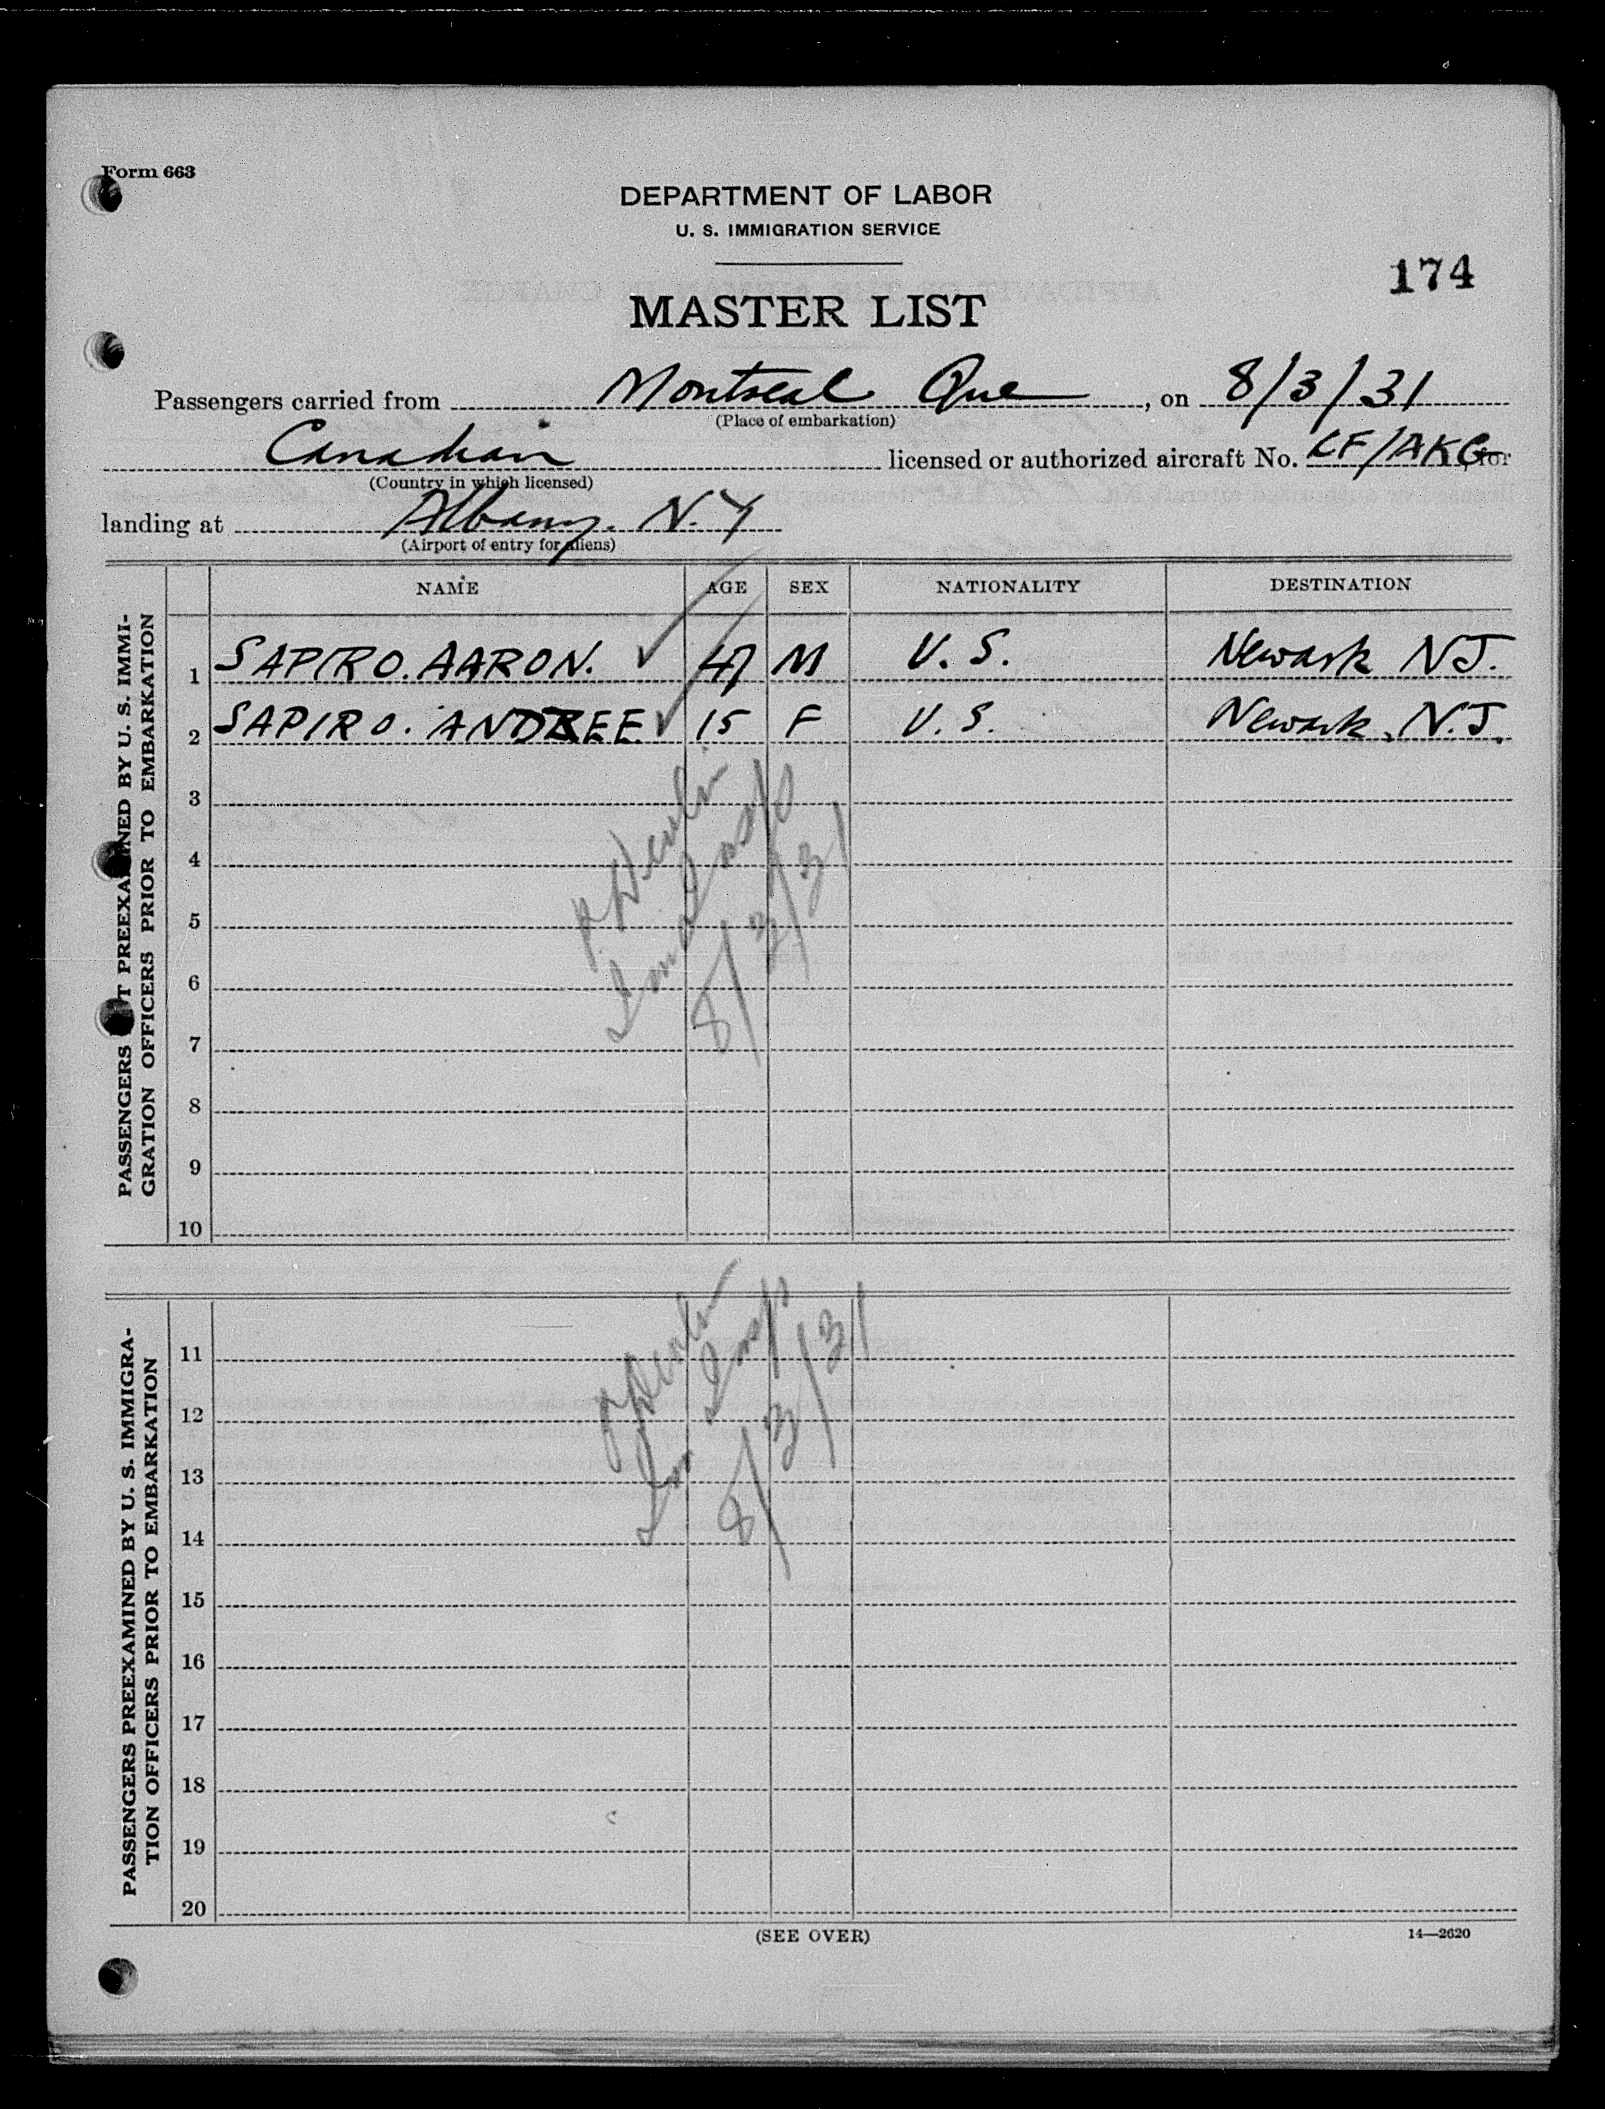 Form 663
DEPARTMENT OF LABOR
U. S. IMMIGRATION SERVICE
174
MASTER LIST
Passengers carried from Montreal Que, on 8/3/31
(Place of embarkation)
Canadian licensed or authorized aircraft No. CF/AKG for
(Country in which licensed)
landing at Albany. N.Y
(Airport of entry for aliens)
NAME AGE SEX NATIONALITY DESTINATION
PASSENGERS NOT PREEXAMINED BY U. S. IMMI-
GRATION OFFICERS PRIOR TO EMBARKATION
1 SAPIRO. AARON. 47 M U. S. Newark NJ.
2 SAPIRO. ANDREE 15 F U. S. Newark, N.J.
3
4
5
6
7
8
9
10
P. Devlin
8/3/31
PASSENGERS PREEXAMINED BY U. S. IMMIGRA-
TION OFFICERS PRIOR TO EMBARKATION
11
12
13
14
15
16
17
18
19
20
P Devlin
Imm Insp
8/3/31
(SEE OVER)
14—2620